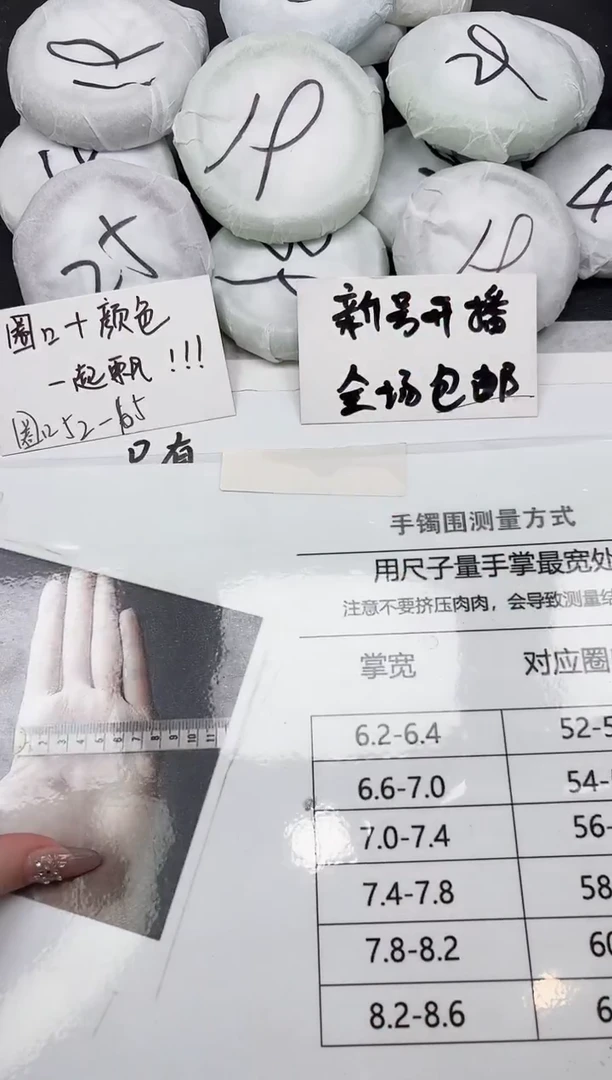 25
4
圈口+颜色
一起飘!!!
圈口52-65
新号开播
全场包邮
只有
手镯围测量方式
用尺子量手掌最宽处
注意不要挤压肉肉，会导致测量结
掌宽 对应圈
6.2-6.4 52-5
6.6-7.0 54-
7.0-7.4 56-
7.4-7.8 58
7.8-8.2 60
8.2-8.6 6
2 3 4 5 6 7 8 9 10 11